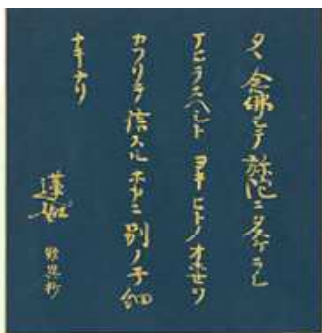 タヽ念佛シテ弥陀ニタスケラレ
マヒラスヘシト ヨキヒトノオホセヲ
カフリテ信スルホカニ別ノ子細
ナキナリ
蓮如 歎異抄